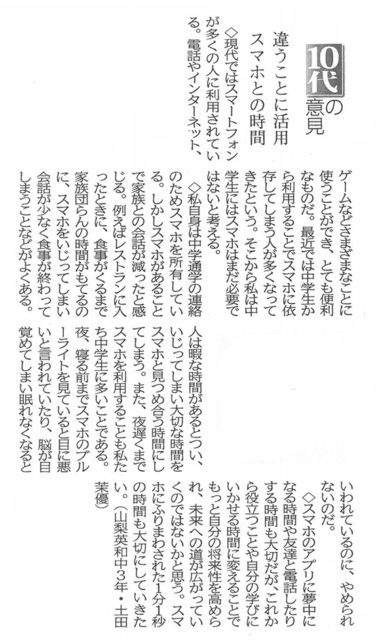 10代の意見
違うことに活用
スマホとの時間
◇現代ではスマートフォン
が多くの人に利用されてい
る。電話やインターネット、
ゲームなどさまざまなことに
使うことができ、とても便利
なものだ。最近では中学生か
ら利用することでスマホに依
存してしまう人が多くなって
きたという。そこから私は中
学生にはスマホはまだ必要で
はないと考える。
◇私自身は中学通学の連絡
のためスマホを所有してい
る。しかしスマホがあること
で家族との会話が減ったと感
じる。例えばレストランに入
ったときに、食事がくるまで
家族団らんの時間がもてるの
に、スマホをいじってしまい
会話が少なく食事が終わって
しまうことなどがよくある。
人は暇な時間があるとつい、
いじってしまい大切な時間を
スマホと見つめ合う時間にし
てしまう。また、夜遅くまで
スマホを利用することも私た
ち中学生に多いことである。
夜、寝る前までスマホのブル
ーライトを見ていると目に悪
いと言われていたり、脳が目
覚めてしまい眠れなくなると
いわれているのに、やめられ
ないのだ。
◇スマホのアプリに夢中に
なる時間や友達と電話したり
する時間も大切だが、これか
ら役立つことや自分の学びに
いかせる時間に変えることで
もっと自分の将来性を高めら
れ、未来への道が広がってい
くのではないかと思う。スマ
ホにふりまわされた1分1秒
の時間も大切にしていきた
い。（山梨英和中3年・土田
茉優）